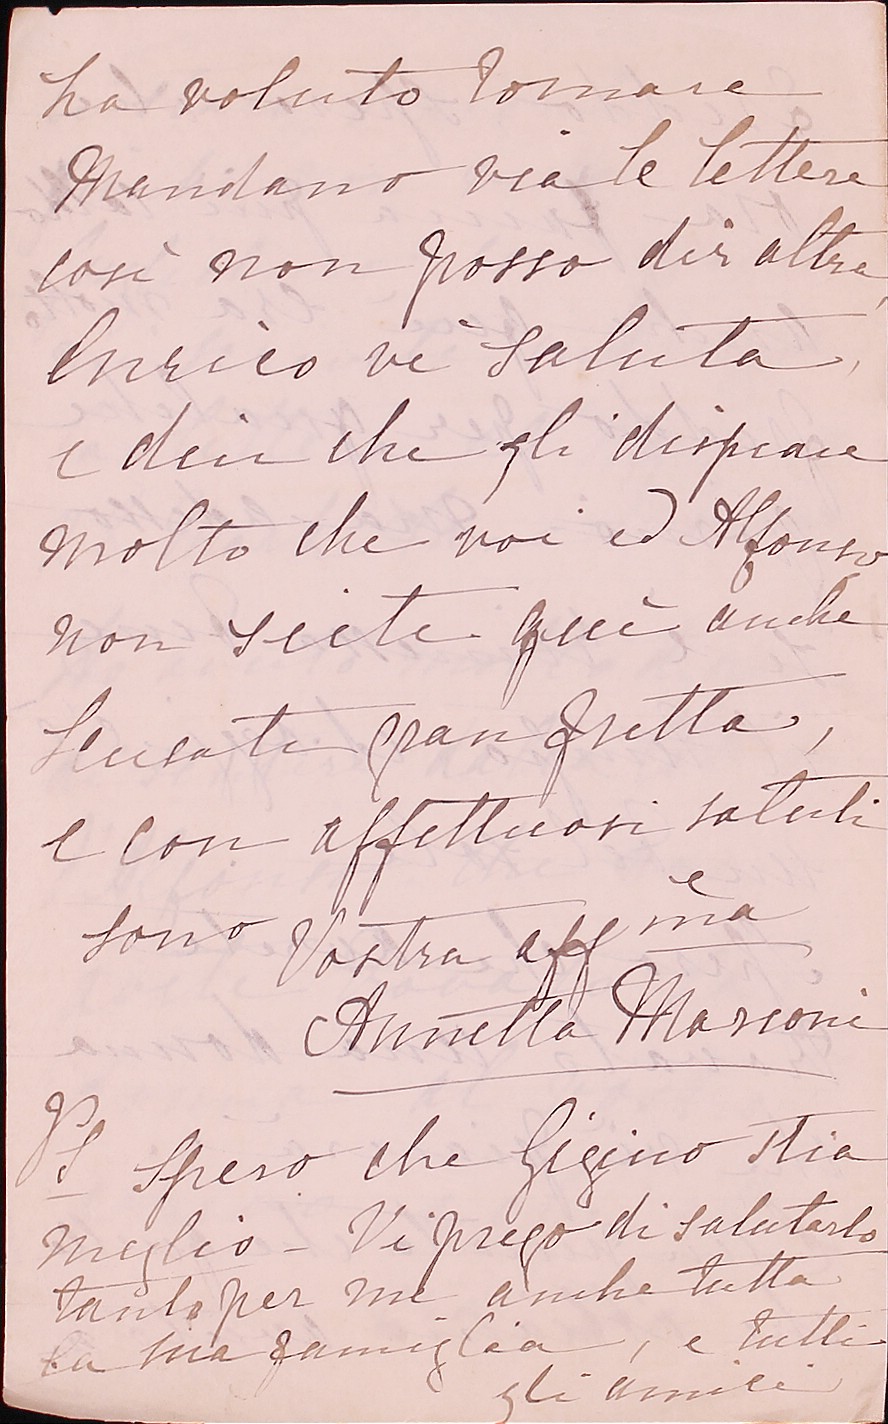 ha voluto tornare
Mandano via le lettere
così non posso dir altro,
Enrico vi saluta,
e dice che gli dispiace
molto che voi ed Alfonso
non siete quì anche
Scusate gran fretta,
e con affettuosi saluti
sono Vostra aff ma
Annetta Marconi
PS Spero che Gigino stia
meglio - Vi prego di salutarlo
tanto per me anche tutta
la sua famiglia, e tutti
gli amici